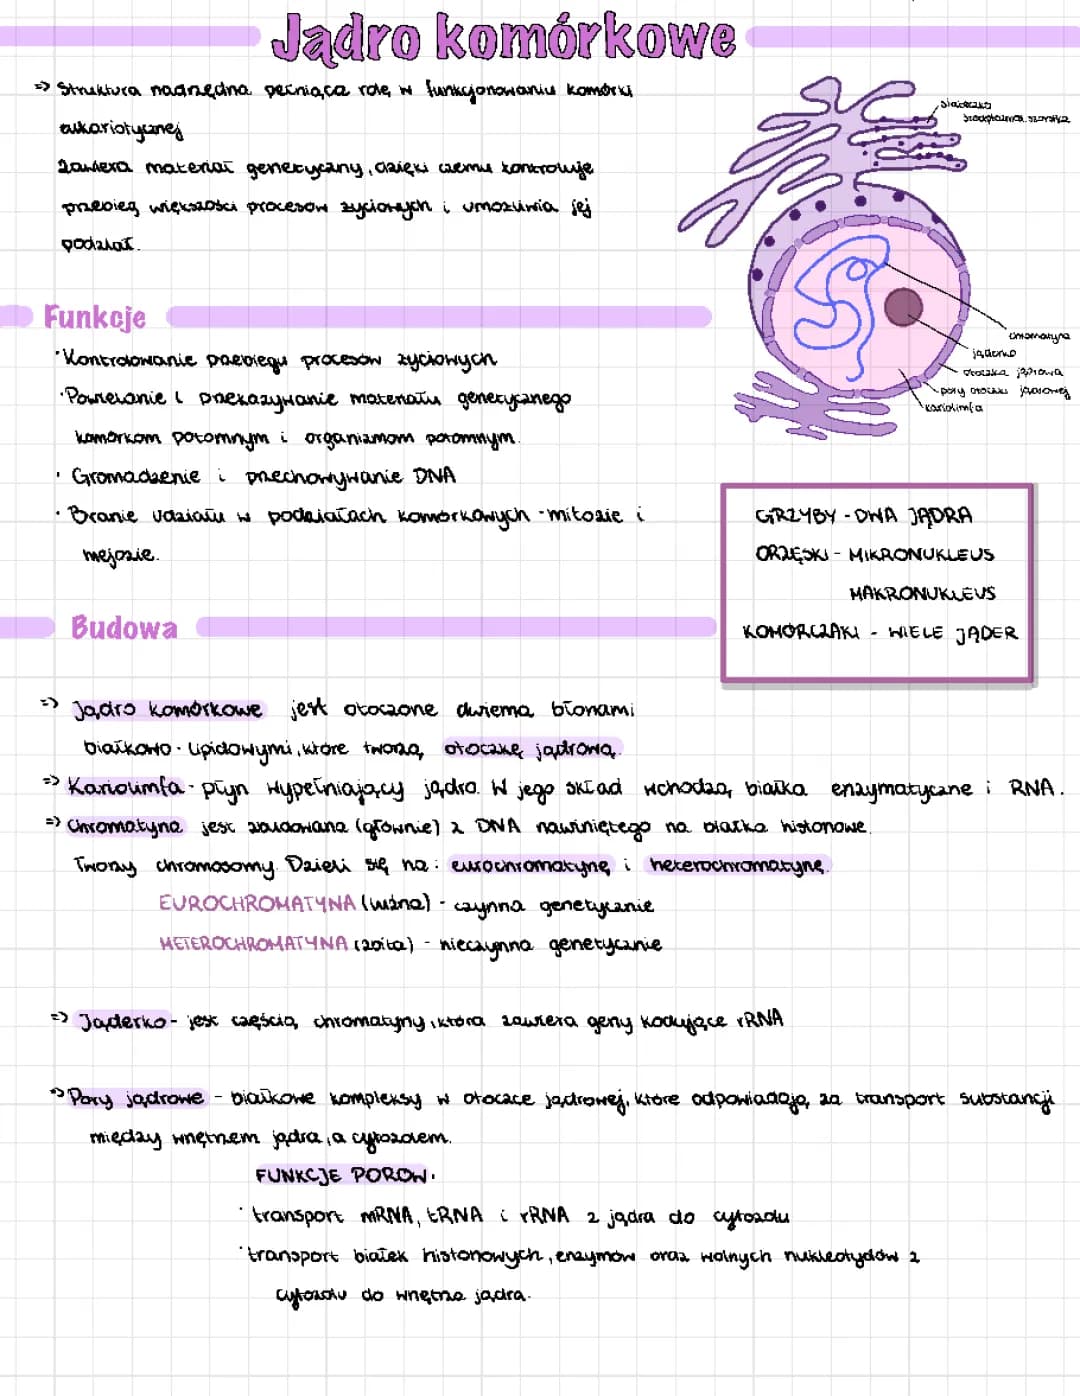 Jądro komórkowe
=> Struktura nadrzędna pełniąca rolę w funkcjonowaniu komórki
eukariotycznej
Zawiera materiał genetyczny, dzięki czemu kontroluje
przebieg większości procesów życiowych i umożliwia jej
podział.
siateczka
śródplazmat. szorstka
chromatyna
jąderko
otoczka jądrowa
pory otoczki jądrowej
kariolimfa
Funkcje
· Kontrolowanie przebiegu procesów życiowych
· Powielanie i przekazywanie materiału genetycznego
komórkom potomnym i organizmom potomnym.
· Gromadzenie i przechowywanie DNA
· Branie udziału w podziałach komórkowych - mitozie i
mejozie.
GRZYBY - DWA JĄDRA
ORZĘSKI - MIKRONUKLEUS
MAKRONUKLEUS
KOMÓRCZAKI - WIELE JĄDER
Budowa
=> Jądro komórkowe jest otoczone dwiema błonami
białkowo - lipidowymi, które tworzą otoczkę jądrową.
=> Kariolimfa - płyn wypełniający jądro. W jego skład wchodzą białka enzymatyczne i RNA.
=> Chromatyna jest zbudowana (głównie) z DNA nawiniętego na białka histonowe.
Tworzy chromosomy. Dzieli się na: eurochromatynę i heterochromatynę.
EUROCHROMATYNA (luźna) - czynna genetycznie
HETEROCHROMATYNA (zbita) - nieczynna genetycznie
=> Jąderko - jest częścią chromatyny, która zawiera geny kodujące rRNA
=> Pory jądrowe - białkowe kompleksy w otoczce jądrowej, które odpowiadają za transport substancji
między wnętrzem jądra, a cytozolem.
FUNKCJE PORÓW:
· transport mRNA, tRNA i rRNA z jądra do cytozolu
· transport białek histonowych, enzymów oraz wolnych nukleotydów z
cytozolu do wnętrza jądra.